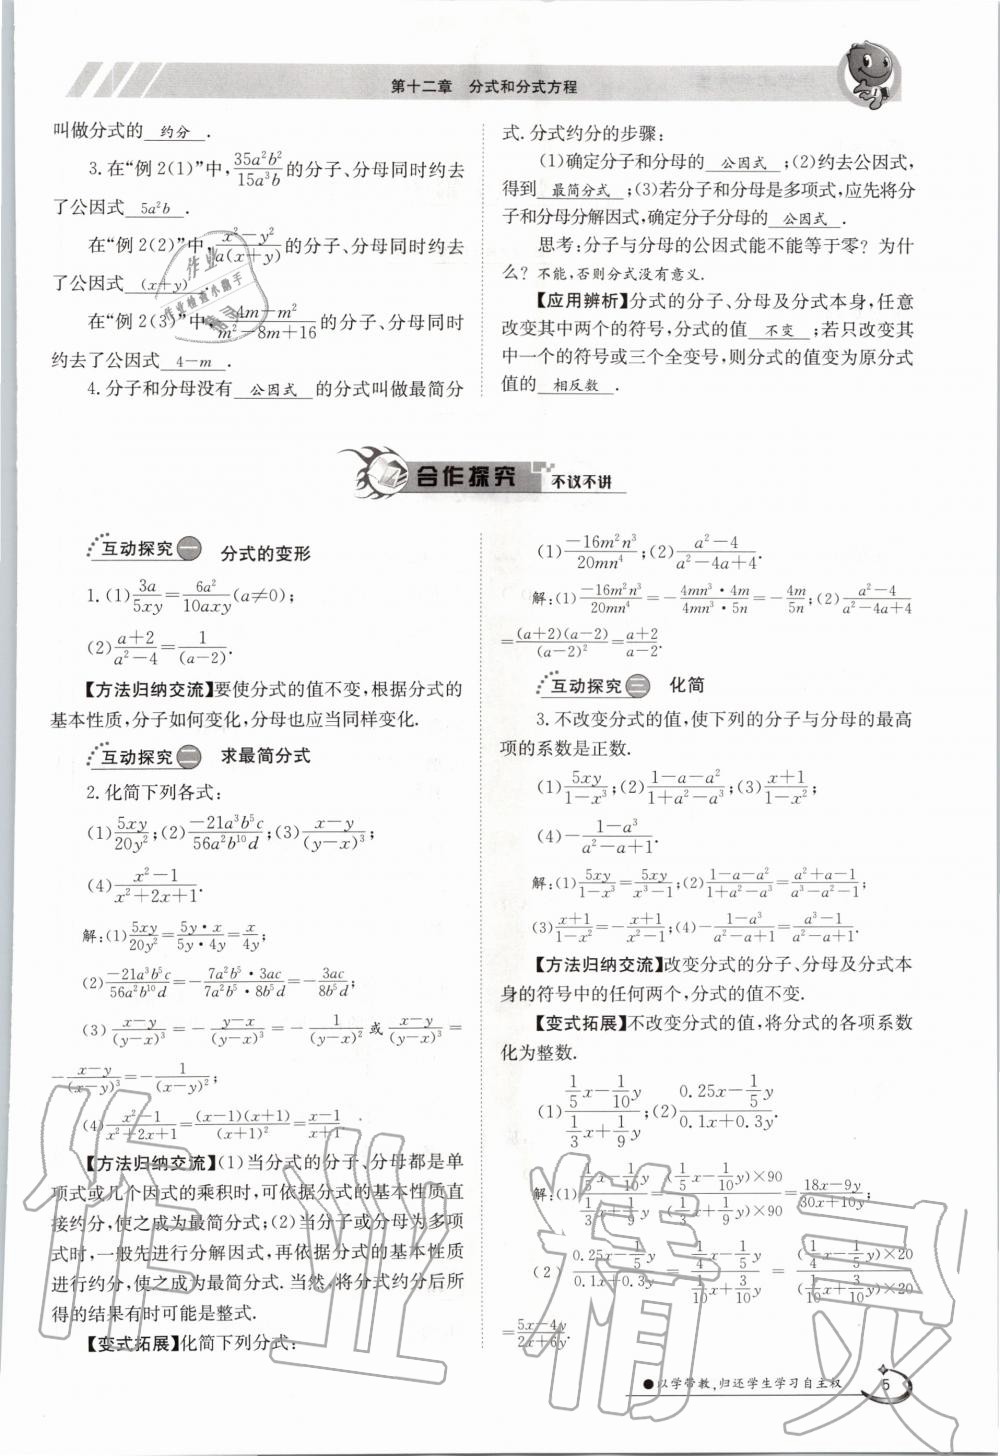 第十二章　分式和分式方程
叫做分式的 约分 .
3. 在“例 2(1)”中,35a²b²/15a³b的分子、分母同时约去
了公因式 5a²b .
在“例 2(2)”中,x²-y²/a(x+y)的分子、分母同时约去
了公因式 (x+y) .
在“例 2(3)”中,4m-m²/m²-8m+16的分子、分母同时
约去了公因式 4-m .
4. 分子和分母没有 公因式 的分式叫做最简分
式. 分式约分的步骤:
(1)确定分子和分母的 公因式 ;(2)约去公因式,
得到 最简分式 ;(3)若分子和分母是多项式,应先将分
子和分母分解因式,确定分子分母的 公因式 .
思考:分子与分母的公因式能不能等于零? 为什
么? 不能,否则分式没有意义.
【应用辨析】分式的分子、分母及分式本身,任意
改变其中两个的符号,分式的值 不变 ;若只改变其
中一个的符号或三个全变号,则分式的值变为原分式
值的 相反数 .
合作探究 不议不讲
互动探究一 分式的变形
1. (1)3a/5xy=6a²/10axy(a≠0);
(2)a+2/a²-4=1/(a-2).
【方法归纳交流】要使分式的值不变,根据分式的
基本性质,分子如何变化,分母也应当同样变化.
互动探究二 求最简分式
2. 化简下列各式:
(1)5xy/20y²;(2)-21a³b⁵c/56a²b¹⁰d;(3)x-y/(y-x)³;
(4)x²-1/x²+2x+1.
解:(1)5xy/20y²=5y·x/5y·4y=x/4y;
(2)-21a³b⁵c/56a²b¹⁰d=-7a²b⁵·3ac/7a²b⁵·8b⁵d=-3ac/8b⁵d;
(3)x-y/(y-x)³=-y-x/(y-x)³=-1/(y-x)²或x-y/(y-x)³=
-x-y/(x-y)³=-1/(x-y)²;
(4)x²-1/x²+2x+1=(x-1)(x+1)/(x+1)²=x-1/x+1.
【方法归纳交流】(1)当分式的分子、分母都是单
项式或几个因式的乘积时,可依据分式的基本性质直
接约分,使之成为最简分式;(2)当分子或分母为多项
式时,一般先进行分解因式,再依据分式的基本性质
进行约分,使之成为最简分式. 当然,将分式约分后所
得的结果有时可能是整式.
【变式拓展】化简下列分式:
(1)-16m²n³/20mn⁴;(2)a²-4/a²-4a+4.
解:(1)-16m²n³/20mn⁴=-4mn³·4m/4mn³·5n=-4m/5n;(2)a²-4/a²-4a+4
=(a+2)(a-2)/(a-2)²=a+2/a-2.
互动探究三 化简
3. 不改变分式的值,使下列的分子与分母的最高
项的系数是正数.
(1)5xy/1-x³;(2)1-a-a²/1+a²-a³;(3)x+1/1-x²;
(4)-1-a³/a²-a+1.
解:(1)5xy/1-x³=-5xy/x³-1;(2)1-a-a²/1+a²-a³=a²+a-1/a³-a²-1;
(3)x+1/1-x²=-x+1/x²-1;(4)-1-a³/a²-a+1=a³-1/a²-a+1.
【方法归纳交流】改变分式的分子、分母及分式本
身的符号中的任何两个,分式的值不变.
【变式拓展】不改变分式的值,将分式的各项系数
化为整数.
(1)(1/5x-1/10y)/(1/3x+1/9y);(2)(0.25x-1/5y)/(0.1x+0.3y).
解:(1)(1/5x-1/10y)/(1/3x+1/9y)=(1/5x-1/10y)×90/(1/3x+1/9y)×90=18x-9y/30x+10y;
(2)(0.25x-1/5y)/(0.1x+0.3y)=(1/4x-1/5y)/(1/10x+3/10y)=(1/4x-1/5y)×20/(1/10x+3/10y)×20
=5x-4y/2x+6y.
●以学带教,归还学生学习自主权 5
作业
作业检查小助手
作业精灵